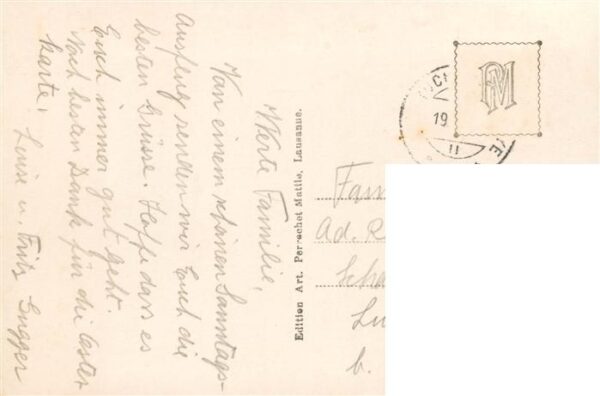 Werte Familie,
Von einem schönen Samstags-
Ausflug senden wir Euch die
besten Grüsse. Hoffe dass es
Euch immer gut geht.
Noch besten Dank für die Oster
karte.
Luise u. Fritz Gugger
Edition Art. Perrochet Matile, Lausanne.
Fam
Ad. R
Scha
Lu
b.
PM
19
11